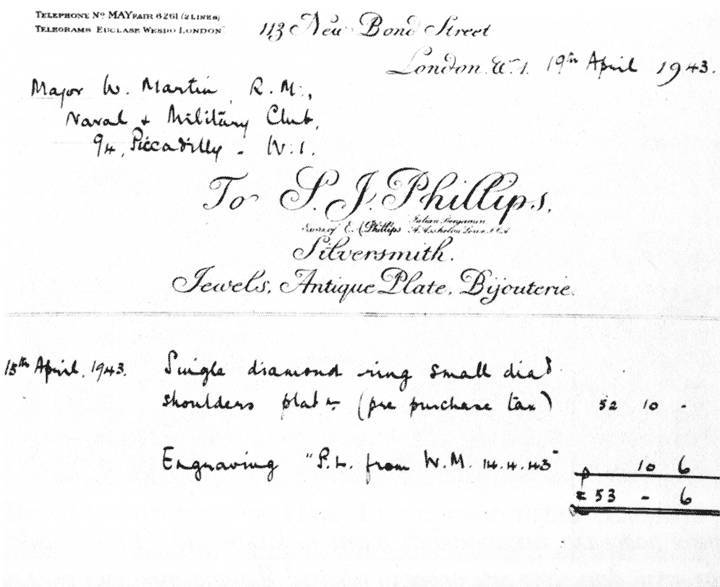 TELEPHONE Nº MAYFAIR 6261 (2 LINES)
TELEGRAMS EUCLASE WESDO LONDON
113 New Bond Street
London. W.1. 19th April 1943.
Major W. Martin R.M.,
Naval & Military Club,
94, Piccadilly - W.1.
To S.J. Phillips,
Sons of E. A. Phillips
Silversmith.
Jewels, Antique Plate, Bijouterie.
15th April, 1943. Single diamond ring small diad
shoulders platm (pre purchase tax) 52 10 -
Engraving "P.L. from W.M. 14.4.43" 10 6
£ 53 - 6